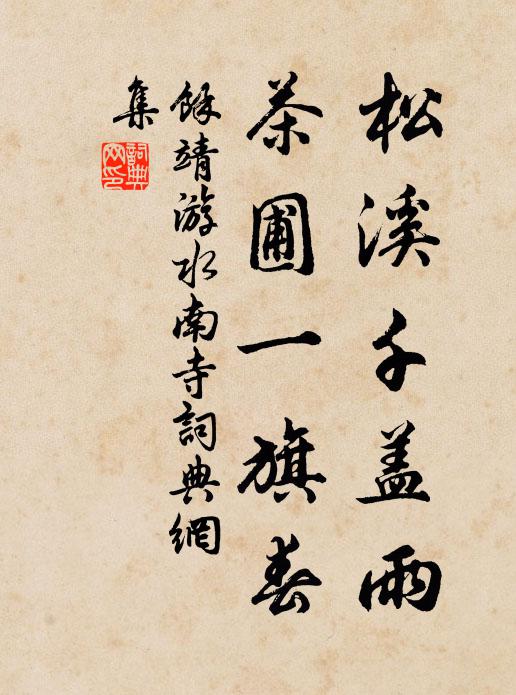 松溪千盖雨
茶圃一旗春
餘靖游水南寺詞典網
集
詞典網印